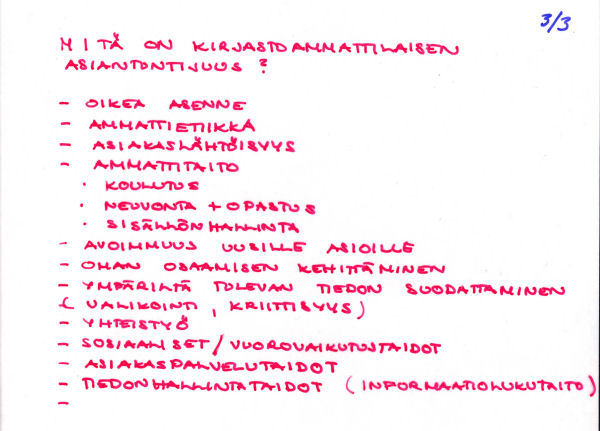 3/3
MITÄ ON KIRJASTOAMMATTILAISEN
ASIANTUNTIJUUS?
- OIKEA ASENNE
- AMMATTIETIIKKA
- ASIAKASLÄHTÖISYYS
- AMMATTITAITO
· KOULUTUS
· NEUVONTA + OPASTUS
· SISÄLLÖNHALLINTA
- AVOIMMUUS UUSILLE ASIOILLE
- OMAN OSAAMISEN KEHITTÄMINEN
- YMPÄRILTÄ TULEVAN TIEDON SUODATTAMINEN
( VALIKOINTI, KRIITTISYYS)
- YHTEISTYÖ
- SOSIAALISET/VUOROVAIKUTUSTAIDOT
- ASIAKASPALVELUTAIDOT
- TIEDONHALLINTATAIDOT (INFORMAATIOLUKUTAITO)
-